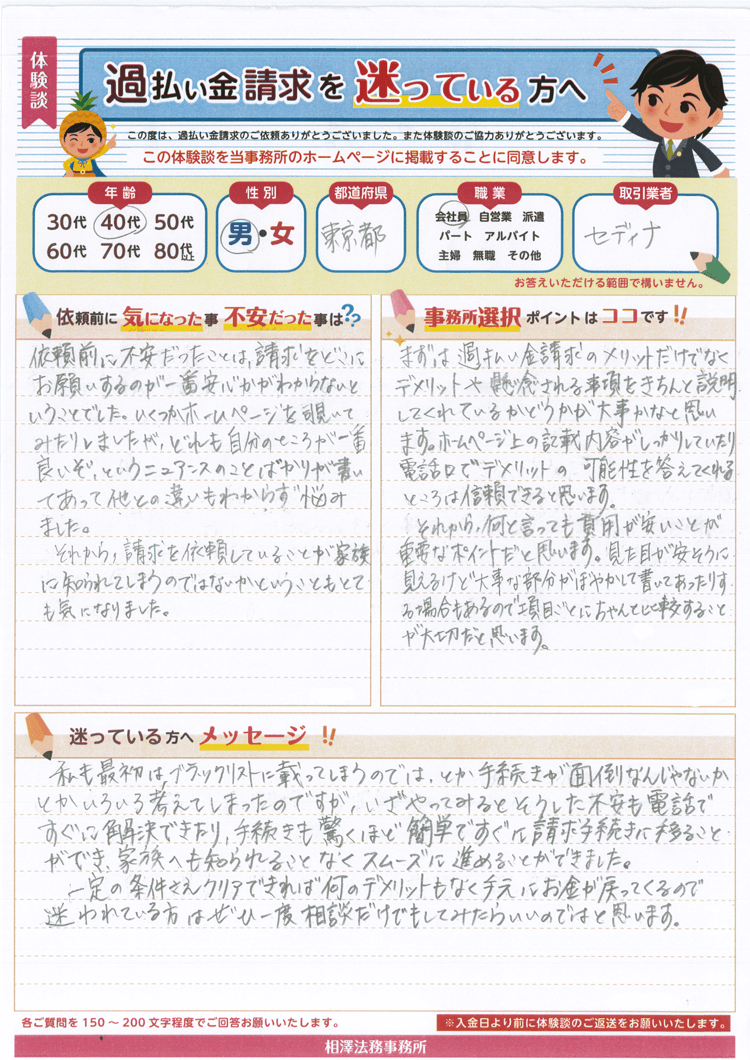 体験談
過払い金請求を迷っている方へ
この度は、過払い金請求のご依頼ありがとうございました。また体験談のご協力ありがとうございます。
この体験談を当事務所のホームページに掲載することに同意します。
年齢
30代 40代 50代
60代 70代 80代以上
性別
男・女
都道府県
東京都
職業
会社員 自営業 派遣
パート アルバイト
主婦 無職 その他
取引業者
セディナ
お答えいただける範囲で構いません。
依頼前に気になった事 不安だった事は??
依頼前に不安だったことは、請求をどこに
お願いするのが一番安心かがわからないと
いうことでした。いくつかホームページを覗いて
みたりしましたが、どれも自分のところが一番
良いぞ、というニュアンスのことばかりが書い
てあって他との違いもわからずず悩み
ました。
それから、請求を依頼していることが家族
に知られてしまうのではないかということもとて
も気になりました。
事務所選択ポイントはココです!!
まずは過払い金請求のメリットだけでなく
デメリットや懸念される事項をきちんと説明
してくれているかどうかが大事かなと思い
ます。ホームページ上の記載内容がしっかりしていたり
電話口でデメリットの可能性を答えてくれる
ところは信頼できると思います。
それから、何と言っても費用が安いことが
重要なポイントだと思います。見た目が安そうに
見えるけど大事な部分がぼやかして書いてあったりす
る場合もあるので項目ごとにちゃんと比較すること
が大切だと思います。
迷っている方へメッセージ!!
私も最初はブラックリストに載ってしまうのでは、とか手続きが面倒なんじゃないか
とかいろいろ考えてしまったのですが、いざやってみるとそうした不安も電話で
すぐに解決できたり、手続きも驚くほど簡単ですぐに請求手続きに移ること
ができ、家族へも知られることなくスムーズに進めることができました。
一定の条件さえクリアできれば何のデメリットもなく手元にお金が戻ってくるので
迷われている方はぜひ一度相談だけでもしてみたらいいのではと思います。
各ご質問を150~200文字程度でご回答お願いいたします。
※入金日より前に体験談のご返送をお願いいたします。
相澤法務事務所